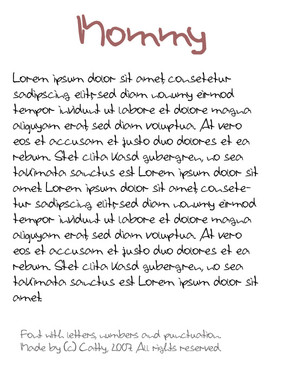 Nommy
Lorem ipsum dolor sit amet, consetetur
sadipscing elitr, sed diam nonumy eirmod
tempor invidunt ut labore et dolore magna
aliquyam erat, sed diam voluptua. At vero
eos et accusam et justo duo dolores et ea
rebum. Stet clita kasd gubergren, no sea
takimata sanctus est Lorem ipsum dolor sit
amet. Lorem ipsum dolor sit amet, consete-
tur sadipscing elitr, sed diam nonumy eirmod
tempor invidunt ut labore et dolore magna
aliquyam erat, sed diam voluptua. At vero
eos et accusam et justo duo dolores et ea
rebum. Stet clita kasd gubergren, no sea
takimata sanctus est Lorem ipsum dolor sit
amet.
Font with letters, numbers and punctuation.
Made by (c) Catty, 2007. All rights reserved.